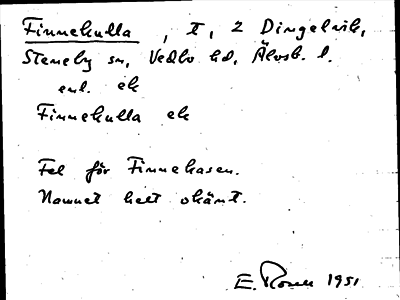 Finnekulla, t, 2 Dingelvik,
Steneby sn, Vedbo hd, Älvsb. l.
enl. ek
Finnekulla ek
Fel för Finnekasen.
Namnet helt okänt.
E. Rosell 1951